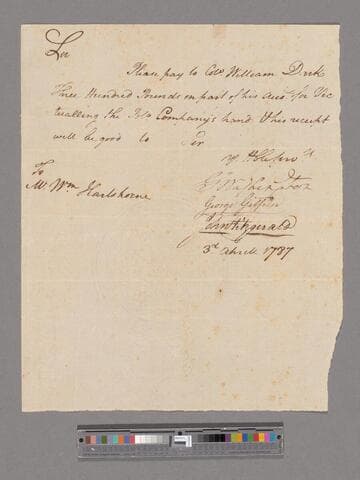 Sir
Please pay to Colo William Deak
Three Hundred Pounds in part of his acct for Vic
tualling the Poto Company's hand & his receipt
will be good to Sir
Yr Hble Servts
Go Washington
George Gilpin
John Fitzgerald
To
Mr Wm Hartshorne
3d April 1787